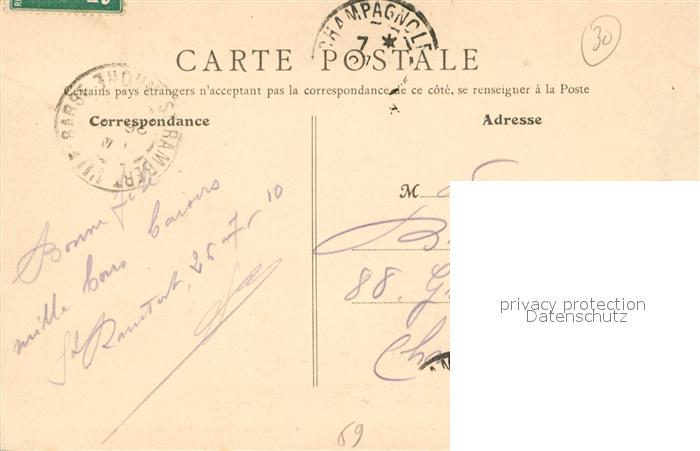 CHAMPAGNOLE
7 *
30
CARTE POSTALE
Certains pays étrangers n'acceptant pas la correspondance de ce côté, se renseigner à la Poste
RAMBERT
Correspondance
Adresse
Bonne fête
mille bons baisers
St Rambert, 25-7-10
M
88. G
Ch
69
privacy protection
Datenschutz